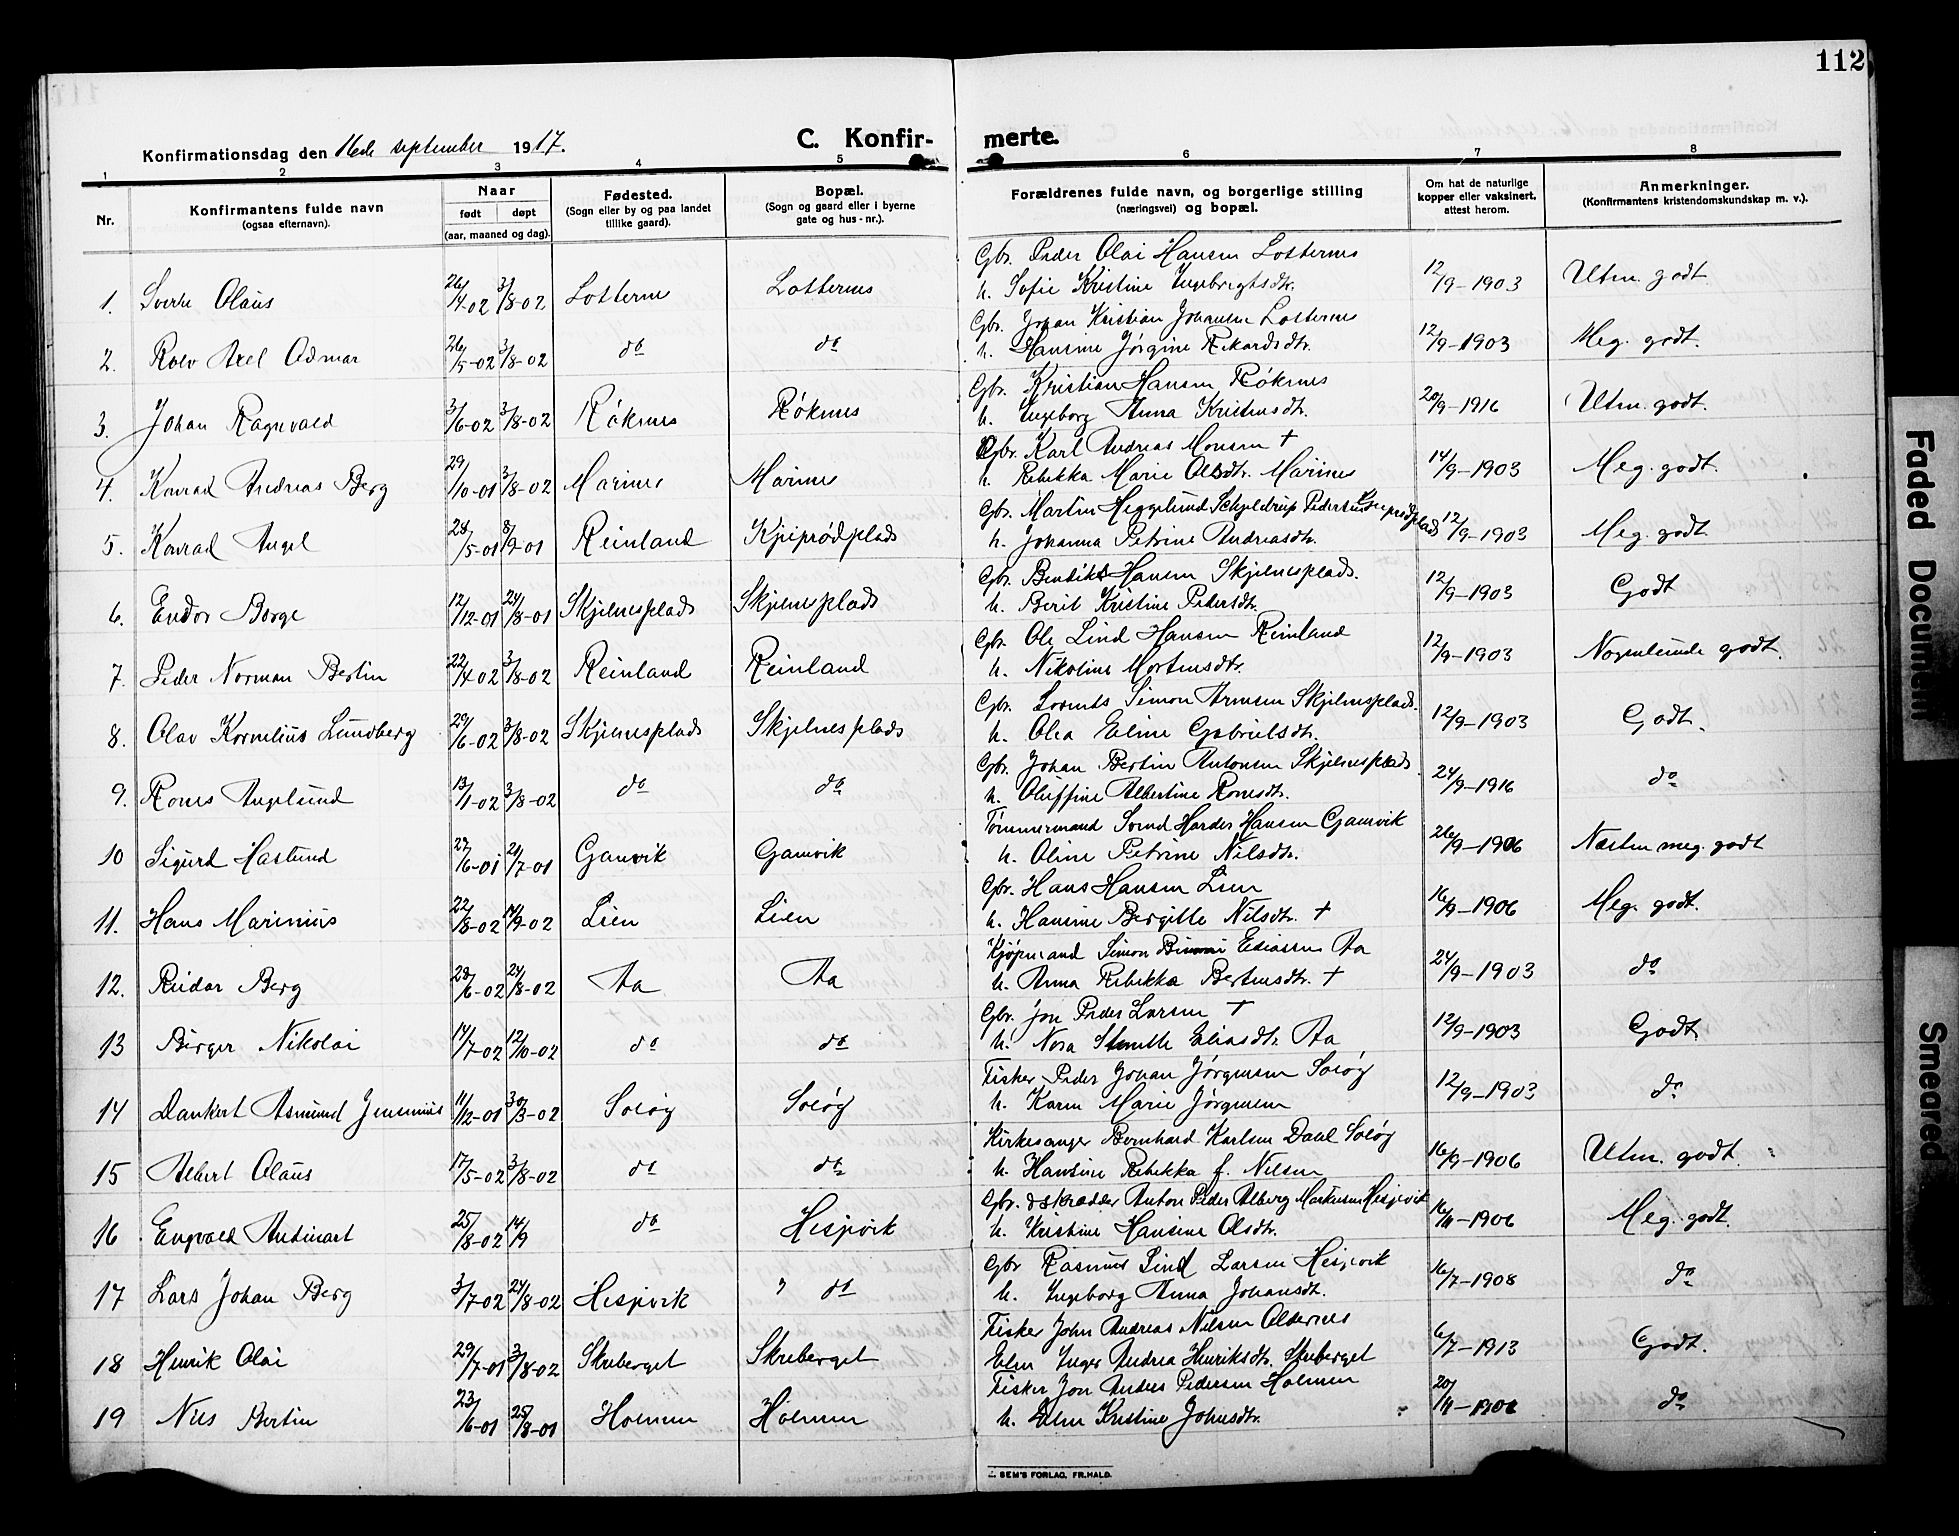 112
Konfirmationsdag den 16de september 1917.
C. Konfir-
merte.
1 2 3 4 5 6 7 8
Nr.
Konfirmantens fulde navn
(ogsaa efternavn).
Naar
født døpt
(aar, maaned og dag).
Fødested.
(Sogn eller by og paa landet
tillike gaard).
Bopæl.
(Sogn og gaard eller i byerne
gate og hus-nr.).
Forældrenes fulde navn, og borgerlige stilling
(næringsvei) og bopæl.
Om hat de naturlige
kopper eller vaksinert,
attest herom.
Anmerkninger.
(Konfirmantens kristendomskundskap m. v.).
Gbr. Peder Olai Hansen Lotternes
1. Sverre Olaus 26/4-02 3/8-02 Lotternes Lotternes h. Sofie Kristine Ingebrigtsdtr. 12/9-1903 Utm. godt
Gbr. Johan Kristian Johansen Lotternes
2. Rolv Axel Odmar 26/5-02 3/8-02 do do h. Hansine Jørgine Rikardsdtr. 12/9-1903 Meg. godt.
Gbr. Kristian Hansen Røknes
3. Johan Ragnvald 3/6-02 3/8-02 Røknes Røknes h. Ingeborg Anna Kristensdtr. 20/9-1916 Utm. godt.
Gbr. Karl Andreas Monsen †
4. Konrad Andreas Berg 29/10-01 3/8-02 Marines Marines h. Rebekka Marie Olsdtr. Marines 14/9-1903 Meg. godt.
Gbr. Martin Heggelund Schjeldrup Pedersen
5. Konrad Angel 28/5-01 8/9-01 Reinland h. Johanna Petrine Andreasdtr. 12/9-1903 Meg. godt.
Gbr. Bendik Hansen Skjelnesplads.
6. Endor Borge 12/12-01 24/8-01 Skjelnesplads Skjelnesplads h. Berit Kristine Pedersdtr. 12/9-1903 Godt
Gbr. Ole Lind Hansen Reinland
7. Peder Norman Bertin 22/4-02 3/8-02 Reinland Reinland h. Nikoline Mortensdtr. 12/9-1903 Nogenlunde godt.
Gbr. Lorents Simon Arnesen Skjelnesplads.
8. Olav Kornelius Lundberg 29/6-02 3/8-02 Skjelnesplads Skjelnesplads h. Olea Eline Gabrielsdtr. 12/9-1903 Godt.
Gbr. Johan Bertin Antonsen Skjelnesplads
9. Rones Angelund 13/1-02 3/8-02 do do h. Oluffine Albertine Ronesdtr. 24/9-1916 do
Tømmermand Harder Hansen Gamvik
10 Sigurd Haslund 27/6-01 21/7-01 Gamvik Gamvik h. Oline Petrine Nilsdtr. 26/9-1906 Næsten meg. godt
Gbr. Hans Hansen Lien
11. Hans Marinius 22/8-02 14/9-02 Lien Lien h. Hansine Bergitte Nilsdtr. † 16/9-1906 Meg. godt.
Kjøpmand Simon Eliassen Aa
12. Reidar Berg 28/6-02 24/8-02 Aa Aa h. Anna Rebekka Bertinsdtr. † 24/9-1903 do
Gbr. Jon Peder Larsen †
13 Birger Nikolai 14/7-02 12/10-02 do do h. Nora Eliasdtr. Aa 12/9-1903 Godt
Fisker Peder Johan Jørgensen Soløy
14 Dankert Asmund Jensenius 11/12-01 30/3-02 Soløy Soløy h. Karen Marie Jørgensen 12/9-1903 do
Kirkesanger Bernhard Karlsen Dahl Soløy
15 Albert Olaus 17/5-02 3/8-02 do do h. Hansine Rebekka f. Nilsen 16/9-1906 Utm. godt.
Gbr. & skrædder Anton Peder Alberg Markusen Hesjevik
16 Engvald Antinart 25/8-02 14/9 do Hesjevik h. Kristine Hansine Olsdtr. 16/11-1906 Meg. godt.
Gbr Rasmus Lind Larsen Hesjevik
17 Lars Johan Berg 3/7-02 24/8-02 Hesjevik " do h. Ingeborg Anna Johansdt. 16/7-1908 do
Fisker John Andreas Nilsen Oldernes
18 Henrik Olai 29/7-01 3/8-02 Skreberget Skreberget Elen Inger Andrea Henriksdtr. Skreberget 6/7-1913 Godt.
Fisker Jon Anders Pedersen Holmen
19 Nils Bertin 23/6-01 25/8-01 Holmen Holmen h. Elen Kristine Johnsdtr. do
SEM'S FORLAG, FR.HALD.
Faded Document
Smeared